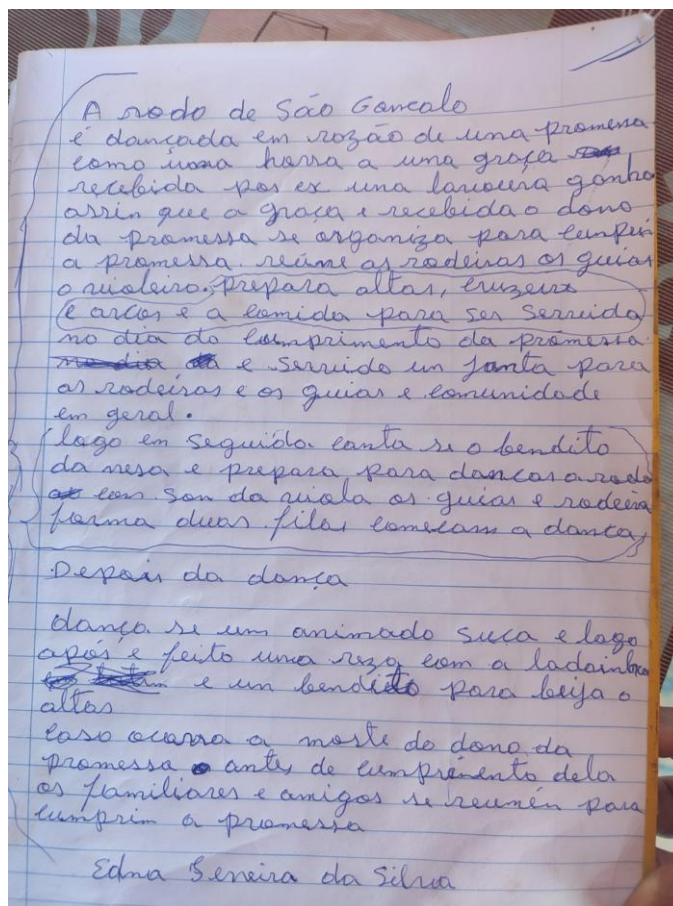 A rodo de São Goncalo
é dançada em rozão de una promessa
como uma honra a uma graça
recebida por ex una lavoura ganha
assin que a graça e recebida o dono
da promessa se organiza para cunprir
a promessa. reúne as rodeiras os guias
o violeiro. prepara altas, cruzeiro
e arcos e a comida para ser servida
no dia do comprimento da promessa.
e servido un janta para
as rodeiras e os guias e comunidade
em geral.
logo en seguida. canta se o bendito
da mesa e prepara para dancar a roda
con son da viola os guias e rodeira
forma duas filas comecam a danca,
Depois da dança
dança se um animado suca e logo
após e feito uma reza com a ladainha
e un bendito para beija o
altas
caso ocorra a morte do dono da
promessa antes de cumprimento dela
os familiares e amigos se reunén para
cumprim a promessa
Edna da Silva